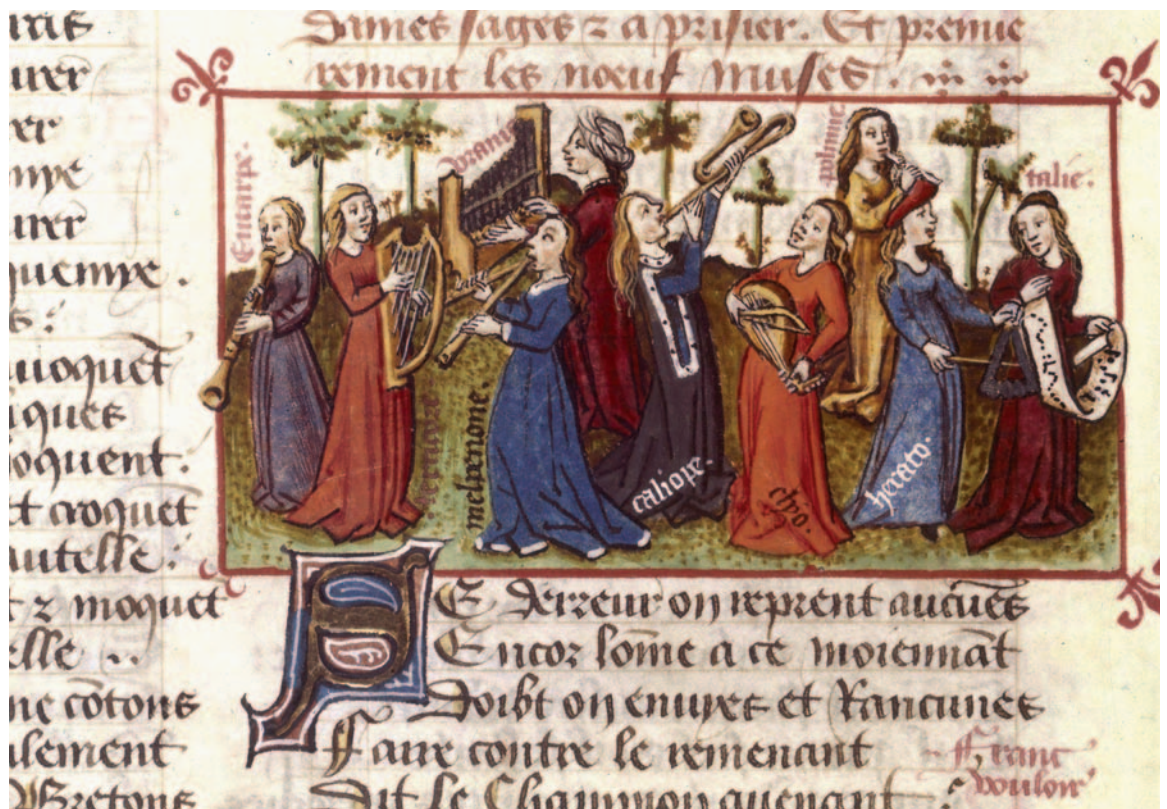 uris
urer
rer
mye
urer
quemye.
s:
uioquet
iques
oquent.
et croquet
autelle:
t ⁊ moquet
elle ..
ne cōtons
alement
Bretons
Dames sages ⁊ a prisier. Et premie
rement les noeuf muses.
Euterpe.
Uranie
polimie.
talie.
melpomone.
caliope.
clyo.
herato.
SE derreur on reprent aucūes
Encor sōme a ce moiennāt
Doibt on enuyes et Rancunes
Faire contre le remenant
Dit le Champion auenant:
Franc
vouloir